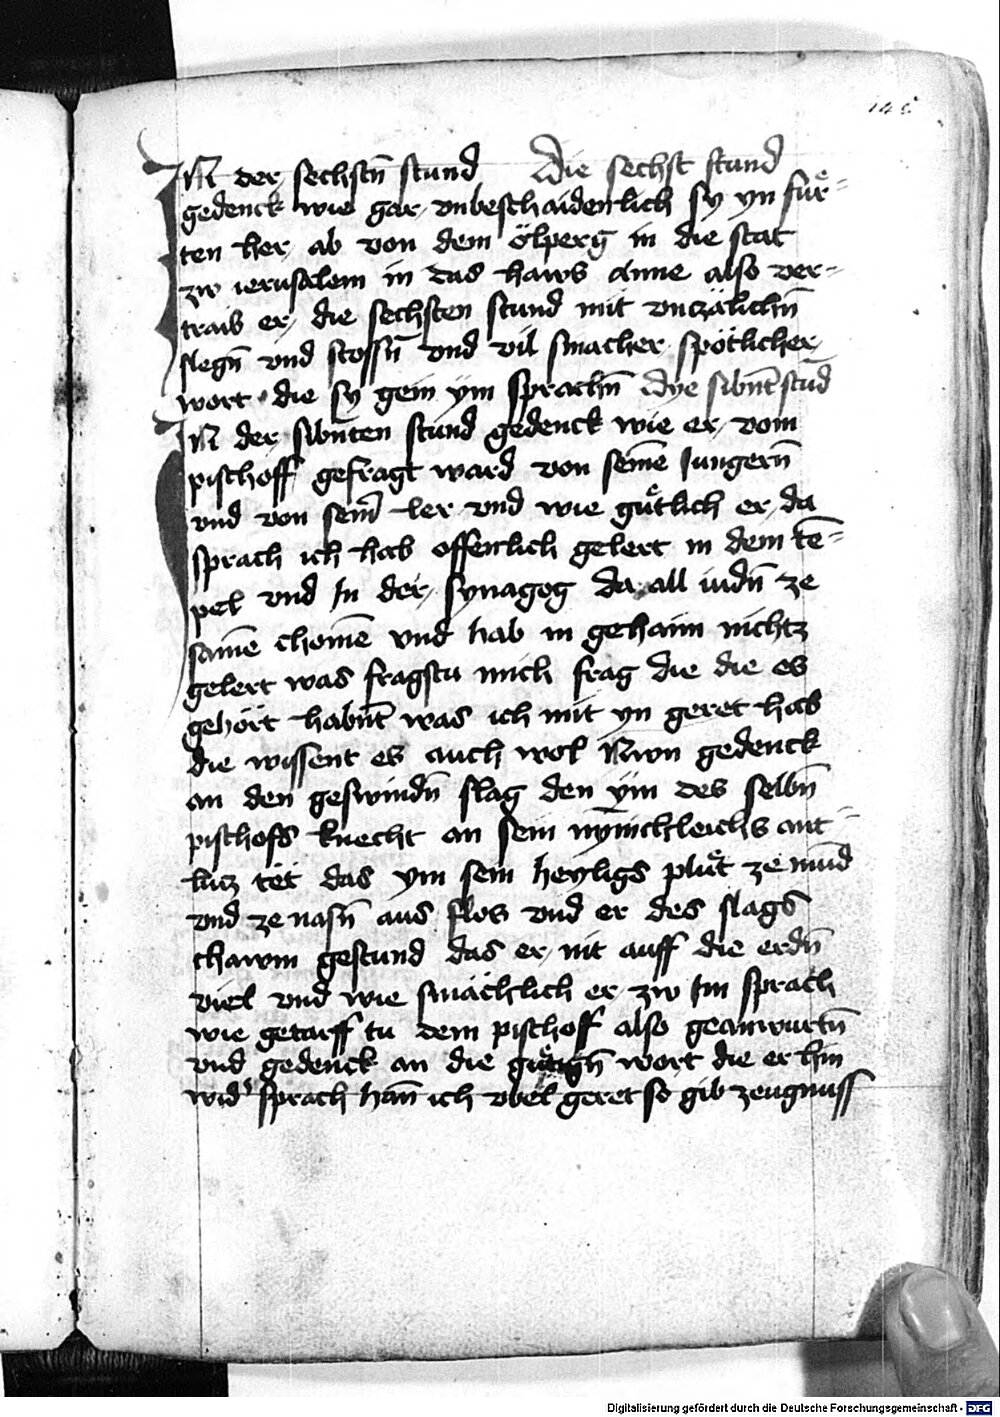 145
IN der sechstn̄ stund Die sechst stund
gedenck wie gar vnbeschaidenlich sy yn für=
ten her ab von dem ölperg in die stat
zw ierusalem in das haws Anne also ver=
traib er die sechsten stund mit vnczälichn̄
slegn̄ vnd stossn̄ vnd vil smacher spötlicher
wort die sy gein ym sprachn̄ Dye sibn̄t stūd
IN der sibn̄ten stund gedenck wie er vom
pischoff gefragt ward von seinē Iungern̄
vnd von seīr ler vnd wie gütlich er da
sprach ich hab offenlich gelert in dem tē=
pel vnd In der synagog da all iudn̄ ze
samē chomē vnd hab in gehaim nichtz
gelert was fragstu mich frag die die es
gehört habn̄t was ich mit yn geret hab
die wissent es auch wol Nwn gedenck
an den geswindn̄ slag den ym des selbn̄
pischofs knecht an sein mynichleichs ant=
lucz tët das ym sein heyligs plüt ze mūd
vnd ze nasn̄ aus flos vnd er des slags
chawm gestund das er nit auff die erdn̄
viel vnd wie smächlich er zw Im sprach
wie getarff tu dem pischoff also geanwurtn̄
vnd gedenck an die gütign̄ wort die er hin
wid' sprach han̄ ich vbel geret so gib zeugnuss
Digitalisierung gefördert durch die Deutsche Forschungsgemeinschaft - DFG